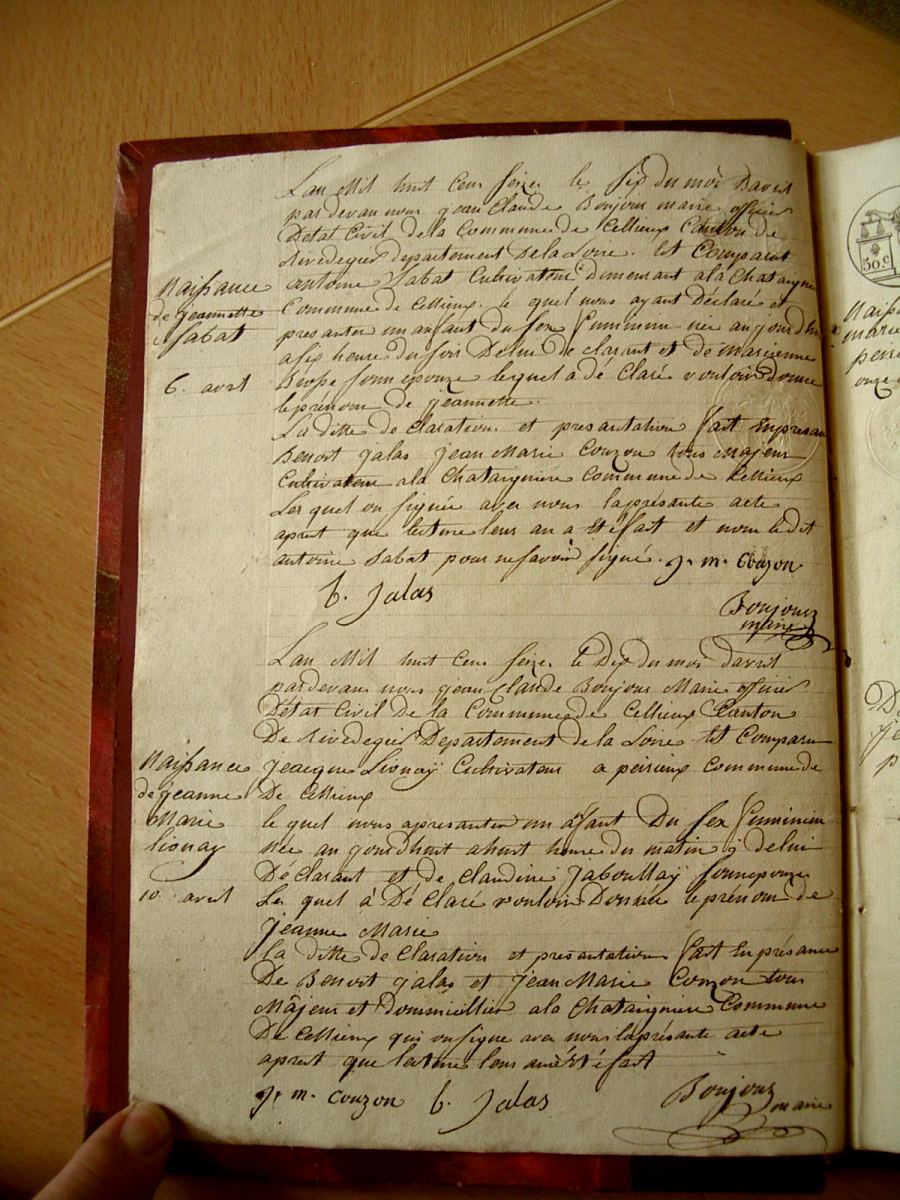 Lan Mil huit Cens Seize le six du moi Davril
par devan nous jean Claude Bonjour maire officier
Detat Civil de la Commune de Cellieux Canton de
Rivedegier departement De la Loire. Est Comparut
antoine Sabat Cultivateur dimeurant a la Chataignie
Commune de Cellieux. le quel nous ayant Déclaré et
presanter un anfant du sex feminin née aujourdhui
a six heure du soir De lui de clarant et de
sonn epouze lequel a dé Claré vouloir donne
le prénom de jeannette.
La ditte de Claration et presantation fait En presan
Benoit jalas jean Marie Couzon tous Majeur
Cultivateur a la Chataignière Commune de Cellieux
Les quel on signée avec nous la présante acte
apret que lecture leur an a été fait et non le dit
antoine Sabat pour ne savoir signé. j. m. Couzon
b. Jalas
Bonjour
maire
Naissance
de jeannette
Sabat
6. avril
Lan Mil huit Cens seize le Dix du moi davril
par devans nous jean Claude Bonjour Maire officier
Détat Civil De la Commune de Cellieux Canton
De Rivedegier Departement de la Loire Est Comparu
jeacque Lionay Cultivateur a peirieux Commune de
De Cellieux
le quel nous a presanter un afant Du sex feminien
née au jourdhuit a huit heure du matin de lui
Déclarant et de Claudine jaboullay sonn epouze
Le quel à Dé Claré vouloir Donnée le prénom de
jeanne Marie
la ditte de Claration et presantation fait En présance
De Benoit jalas et Jean Marie Couzon tous
Majeur et dommicillier a la Chataignière Commune
De Cellieux qui on signe avec nous la présante acte
apret que lecture leur an a été fait
j. m. Couzon b. Jalas Bonjour maire
Naissance
de jeanne
Marie
lionay
10 avril
50.c